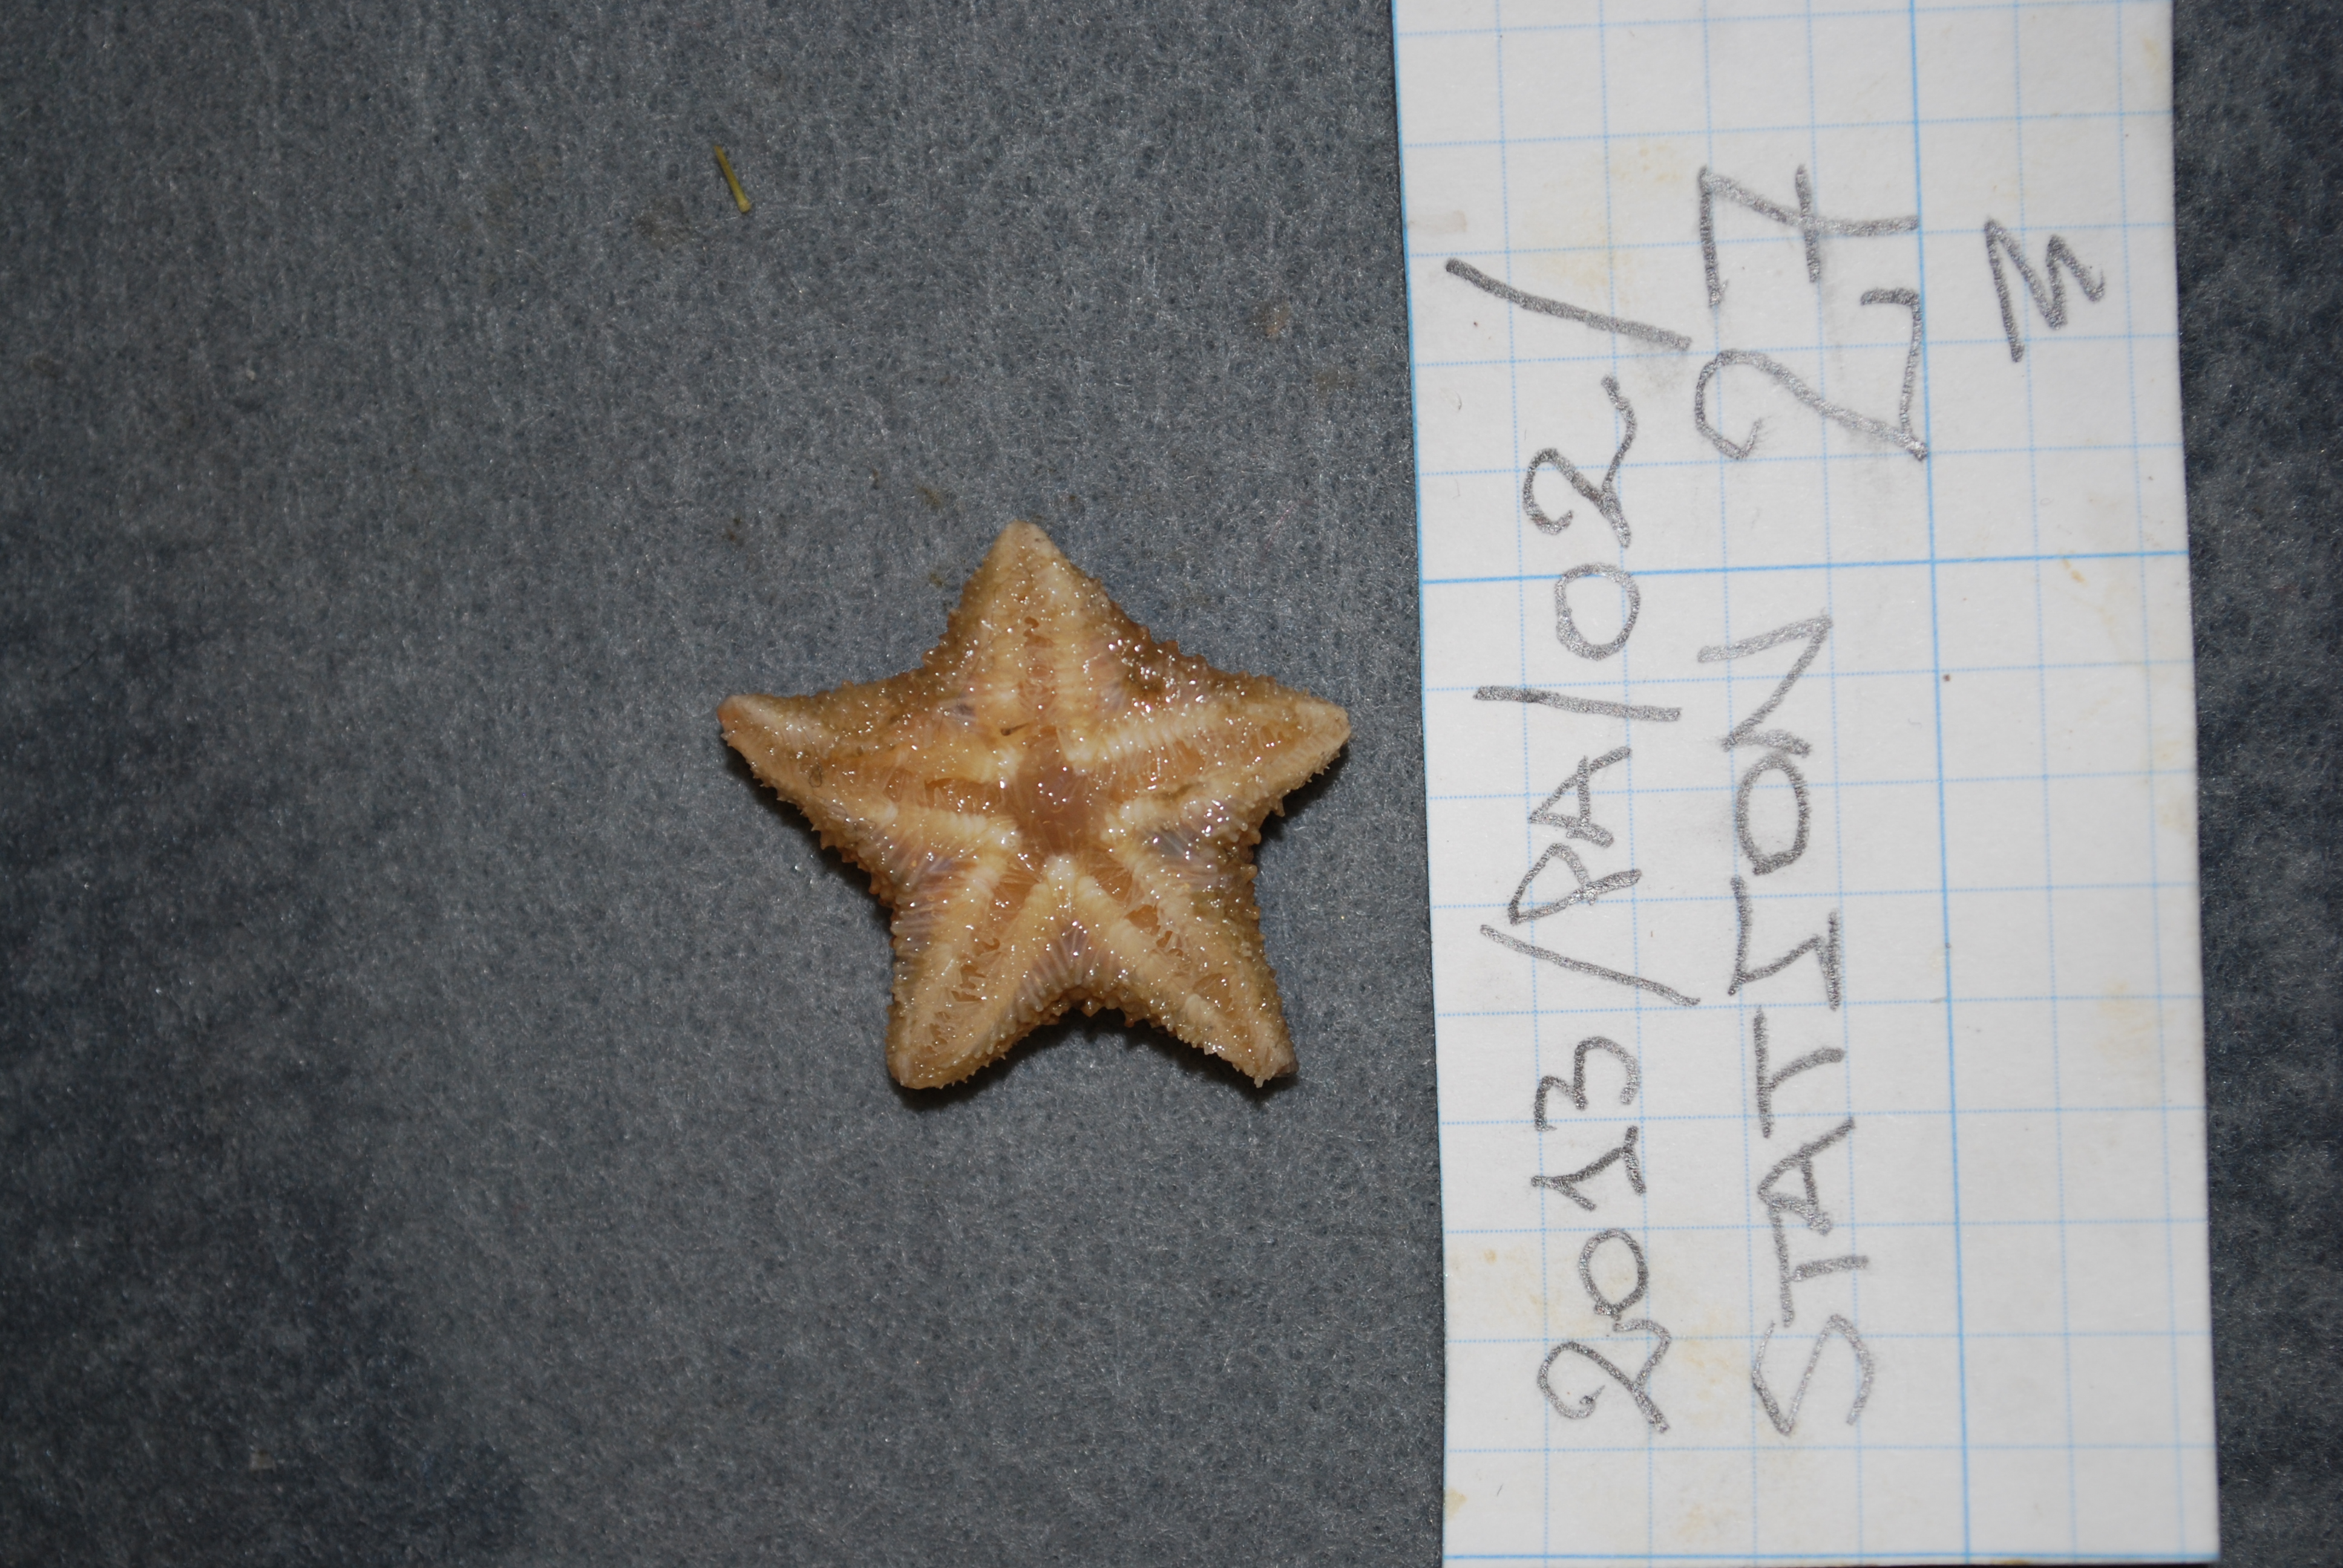 2013/RA/02/
STATION 27
M